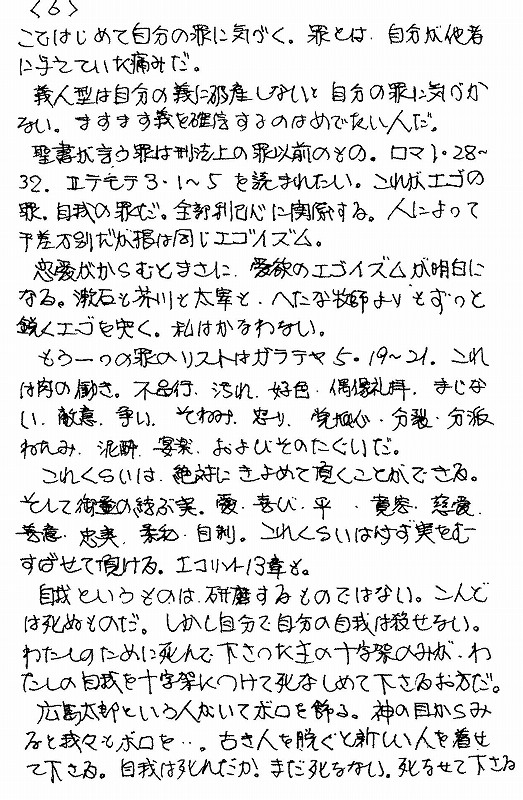 <6>
こではじめて自分の罪に気づく。罪とは、自分が他者
に与えていた痛みだ。
義人型は自分の義に破産しないと自分の罪に気づか
ない。ますます義を確信するのはめでたい人だ。
聖書が言う罪は刑法上の罪以前のもの。ロマ1・28~
32. Ⅱテモテ3・1~5 を読まれたい。これがエゴの
罪。自我の罪だ。全部利己心に関係する。人によって
千差万別だが根は同じエゴイズム。
恋愛がからむとまさに、愛欲のエゴイズムが明白に
なる。漱石も芥川も太宰も、へたな牧師よりもずっと
鋭くエゴを突く。私はかなわない。
もう一つの罪のリストはガラテヤ5・19~21. これ
は肉の働き。不品行、汚れ、好色・偶像礼拝、まじな
い、敵意、争い、そねみ、怒り、党派心・分裂・分派
ねたみ、泥酔、宴楽、およびそのたぐいだ。
これくらいは、絶対にきよめて頂くことができる。
そして御霊の結ぶ実。愛・喜び・平 ・寛容、慈愛、
善意・忠実、柔和・自制。これくらいは必ず実をむ
すばせて頂ける。Ⅰコリント13章も。
自我というものは、研磨するものではない。こんど
は死ぬものだ。しかし自分で自分の自我は殺せない。
わたしのために死んで下さった主の十字架のみが、わ
たしの自我を十字架につけて死なしめて下さるお方だ。
広島太郎という人がいてボロを飾る。神の目からみ
ると我々もボロを・・。古き人を脱ぐと新しい人を着せ
て下さる。自我は死んだか。まだ死なない。死なせて下さる